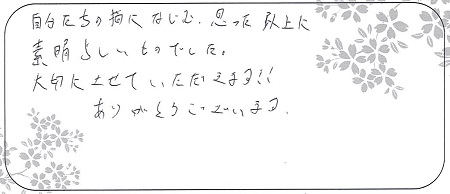 自分たちの指になじむ、思った以上に
素晴らしいものでした。
大切にさせていただきます!!
ありがとうございます。